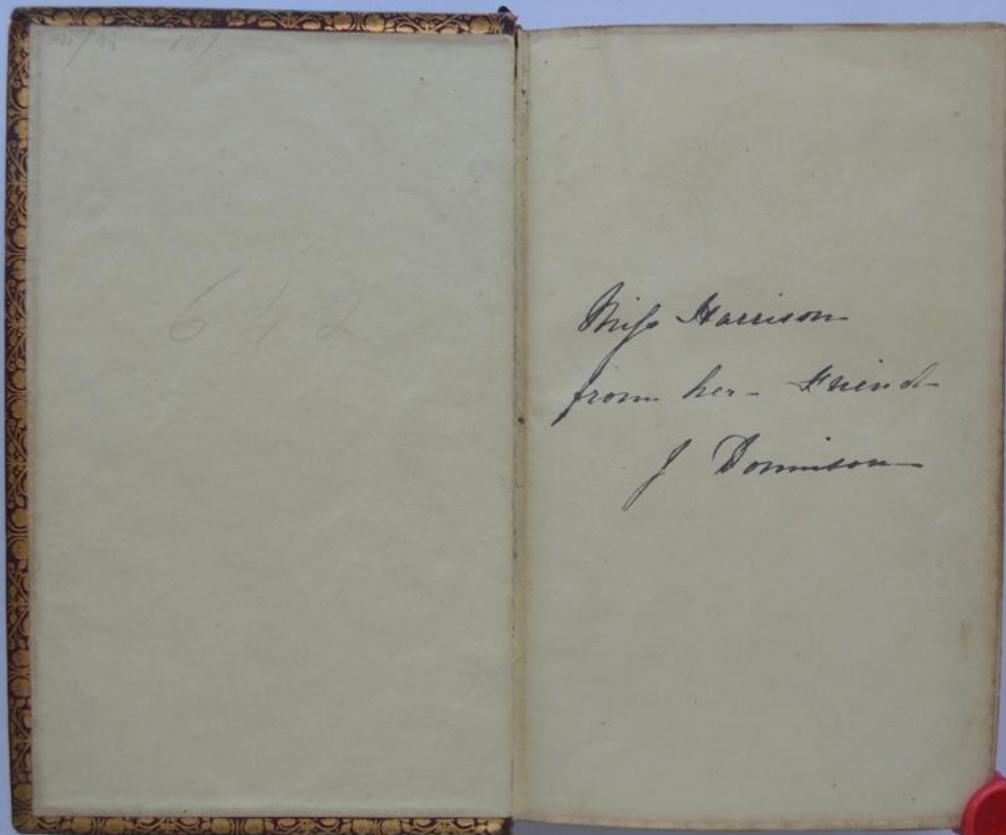 642
Miss Harrison
from her Friend
J Donnison